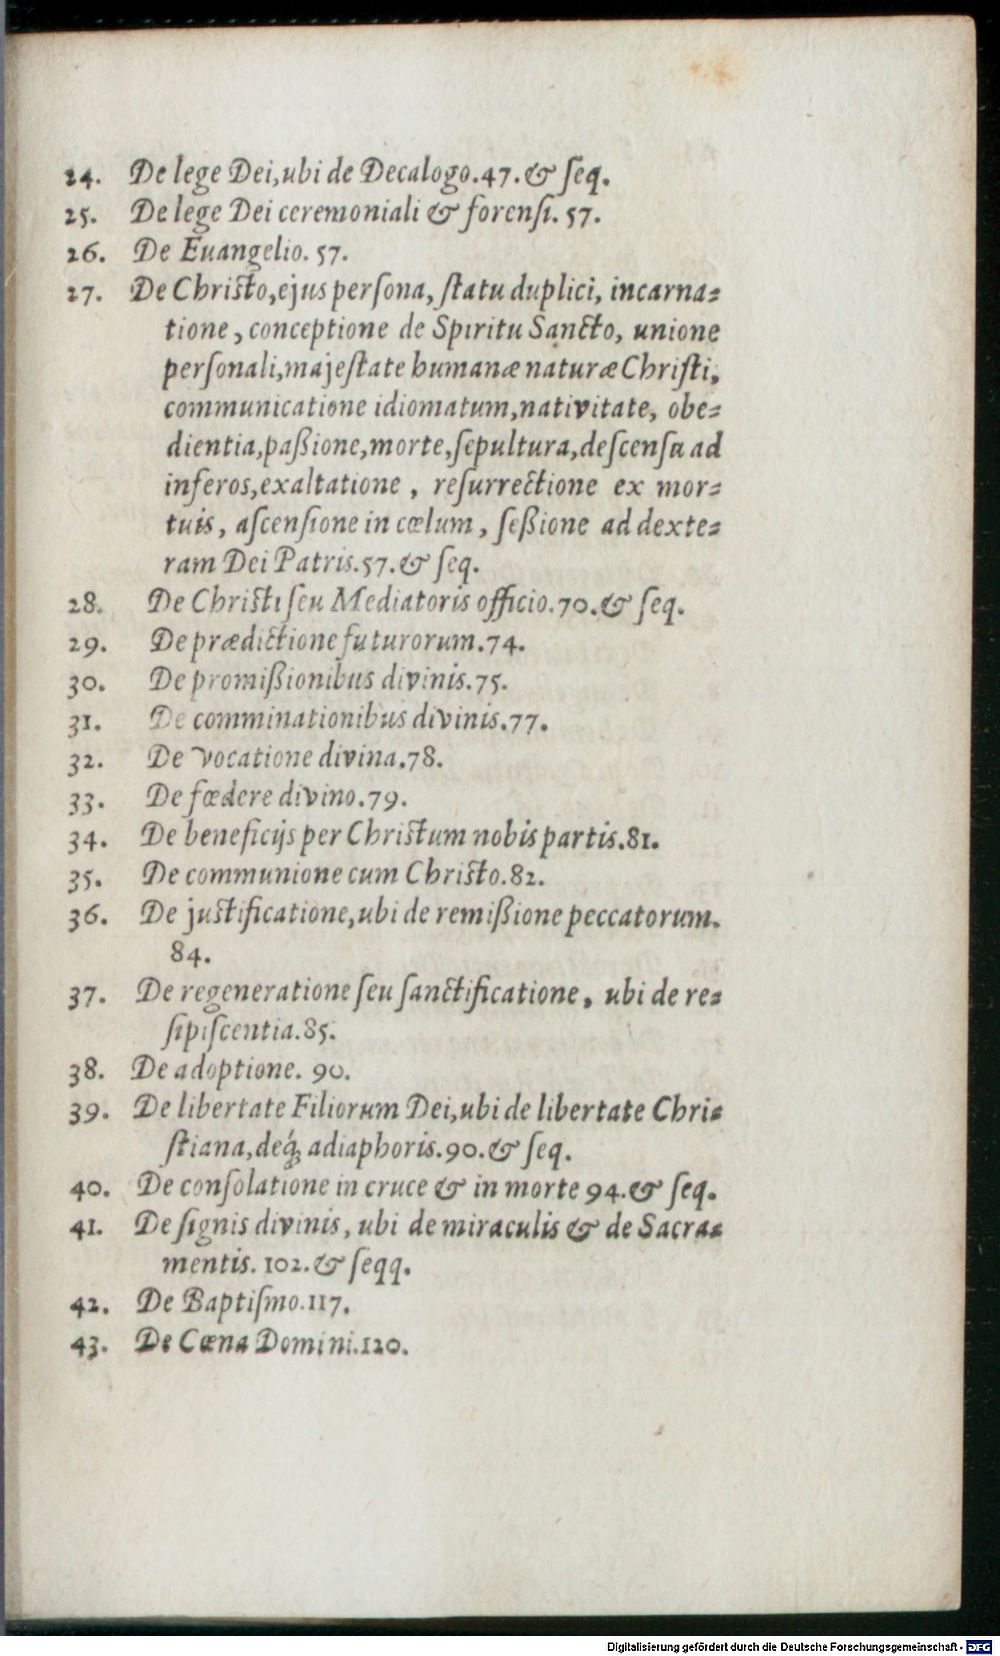 24. De lege Dei, ubi de Decalogo. 47. & ſeq.
25. De lege Dei ceremoniali & forenſi. 57.
26. De Euangelio. 57.
27. De Chriſto, ejus perſona, ſtatu duplici, incarna⸗
tione, conceptione de Spiritu Sancto, unione
perſonali, majeſtate humanæ naturæ Chriſti,
communicatione idiomatum, nativitate, obe⸗
dientia, paßione, morte, ſepultura, deſcenſu ad
inferos, exaltatione, reſurrectione ex mor⸗
tuis, aſcenſione in cœlum, ſeßione ad dexte⸗
ram Dei Patris. 57. & ſeq.
28. De Chriſti ſeu Mediatoris officio. 70. & ſeq.
29. De prædictione futurorum. 74.
30. De promißionibus divinis. 75.
31. De comminationibus divinis. 77.
32. De vocatione divina. 78.
33. De fœdere divino. 79.
34. De beneficijs per Chriſtum nobis partis. 81.
35. De communione cum Chriſto. 82.
36. De juſtificatione, ubi de remißione peccatorum.
84.
37. De regeneratione ſeu ſanctificatione, ubi de re⸗
ſipiſcentia. 85.
38. De adoptione. 90.
39. De libertate Filiorum Dei, ubi de libertate Chri⸗
ſtiana, deq́ꝫ adiaphoris. 90. & ſeq.
40. De conſolatione in cruce & in morte 94. & ſeq.
41. De ſignis divinis, ubi de miraculis & de Sacra⸗
mentis. 102. & ſeqq.
42. De Baptiſmo. 117.
43. De Cœna Domini. 120.
Digitalisierung gefördert durch die Deutsche Forschungsgemeinschaft - DFG